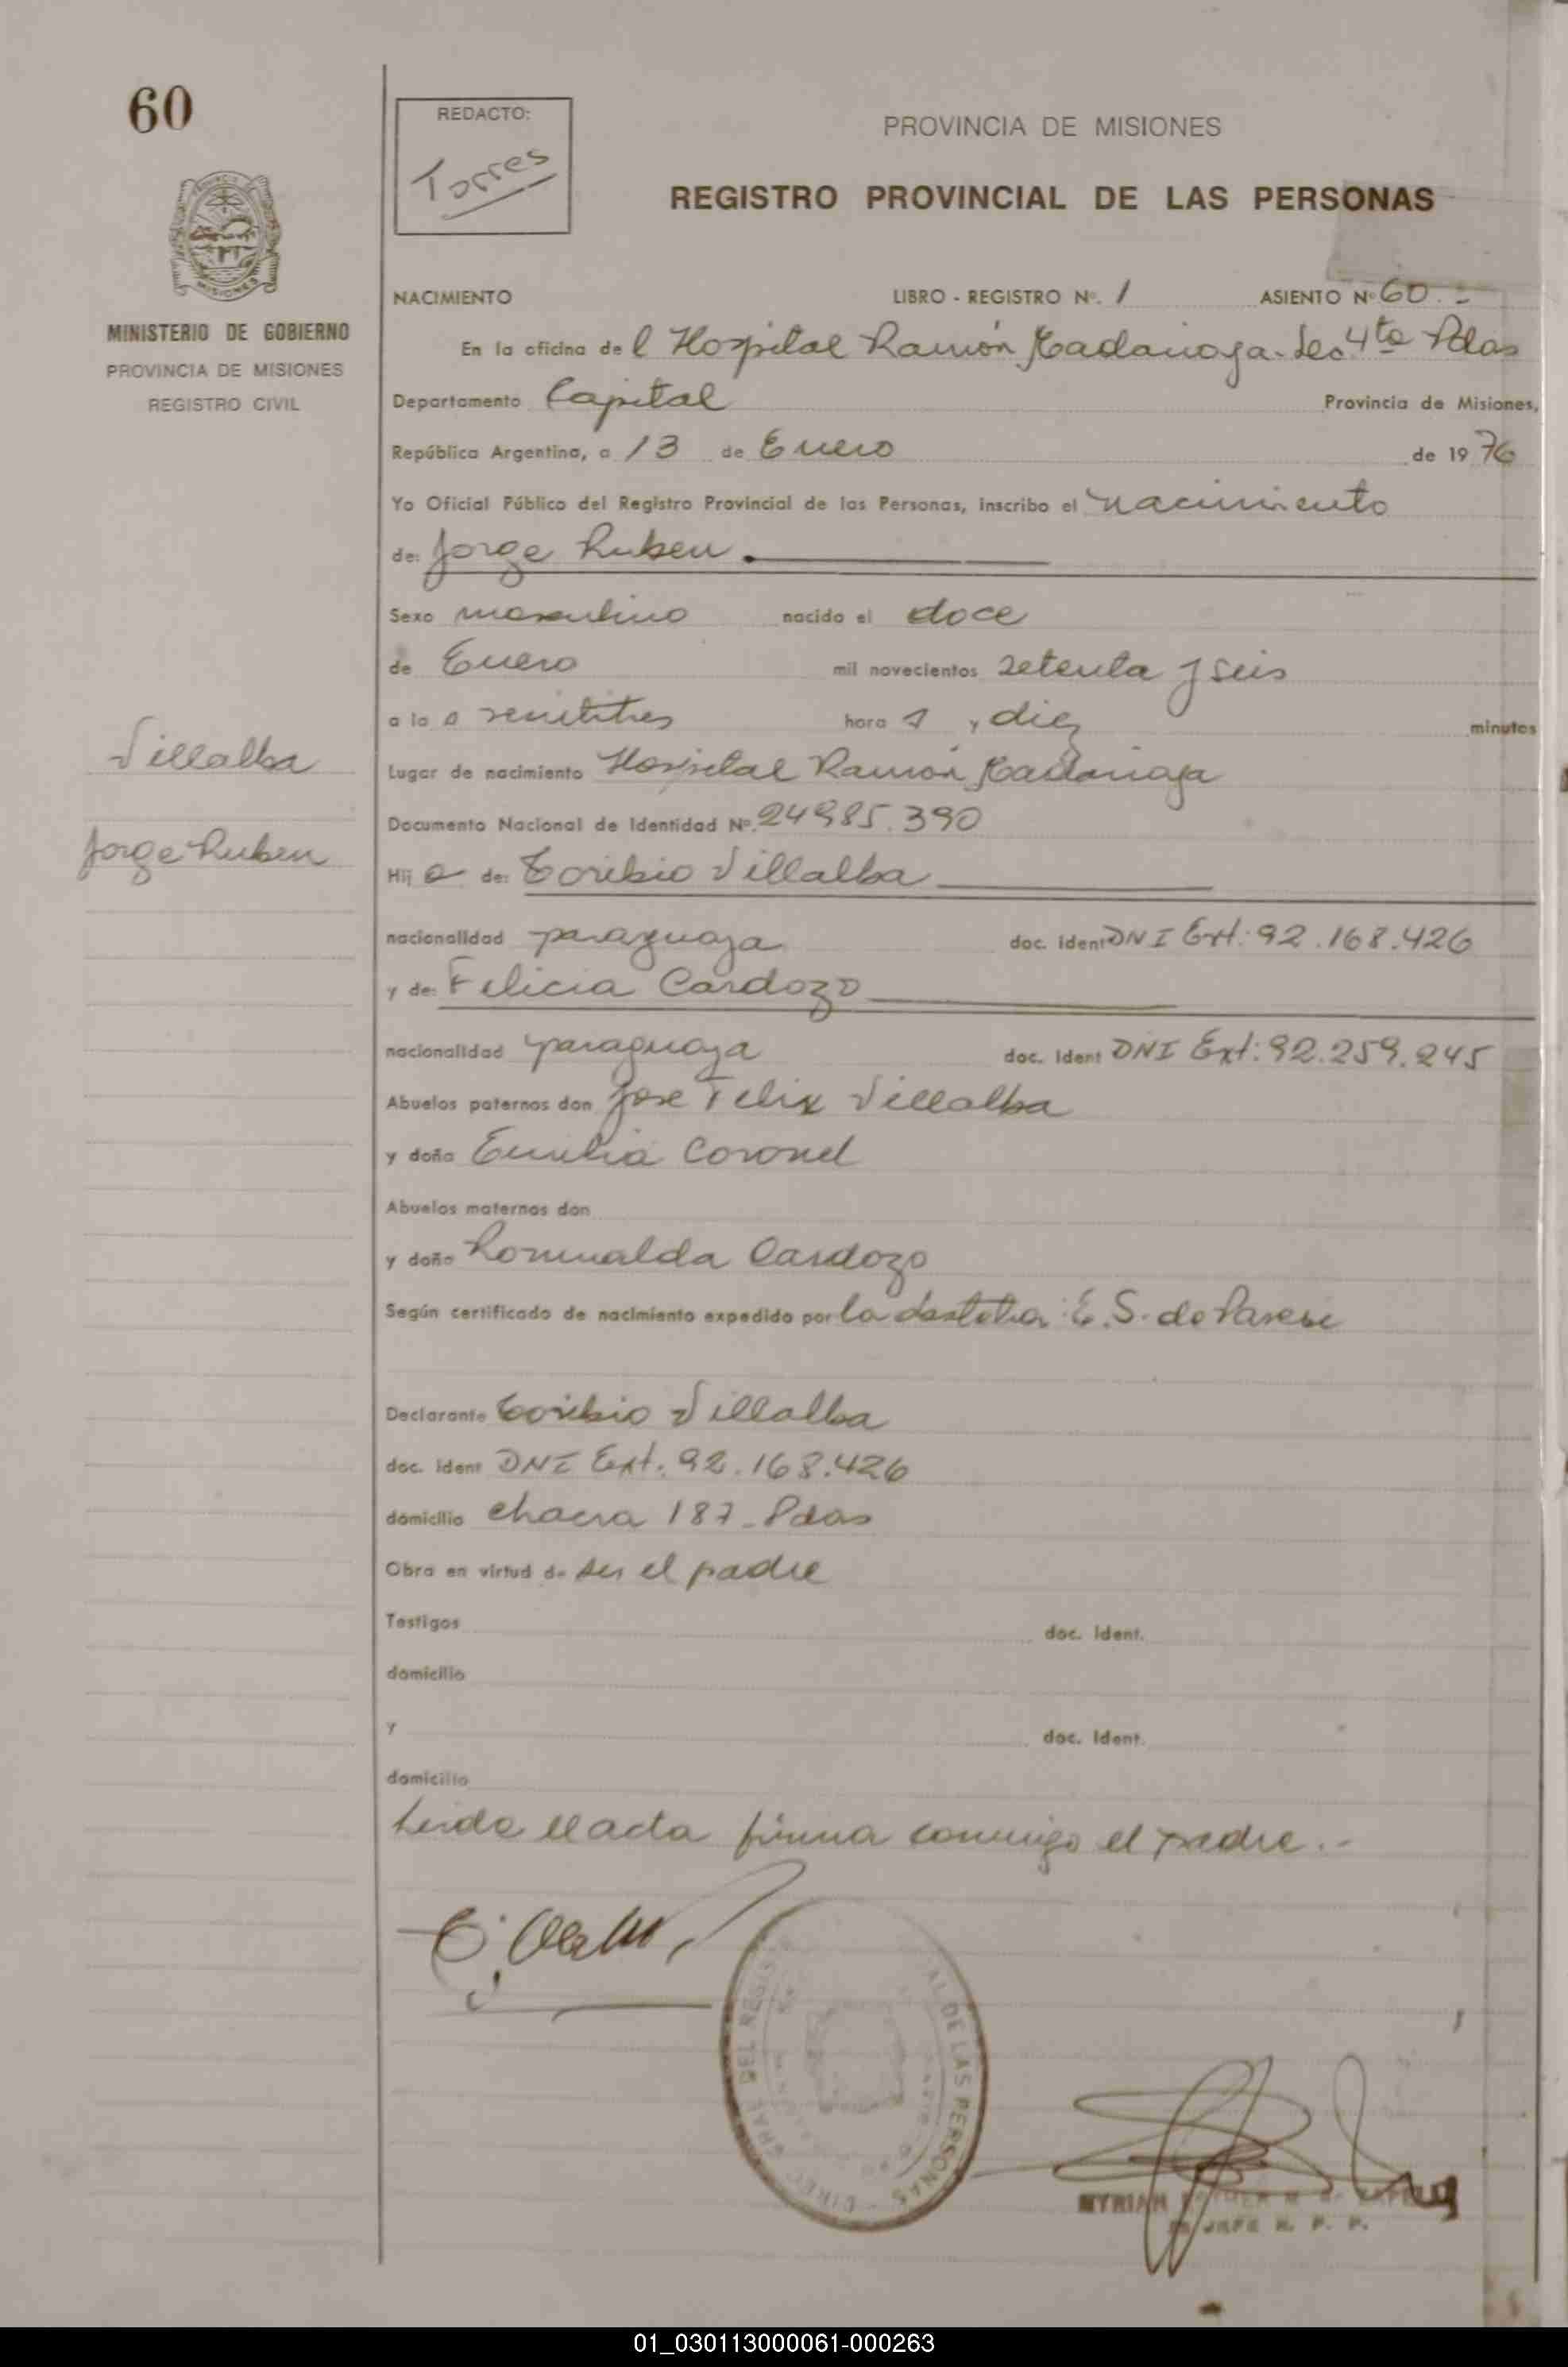 60
REDACTO:
Torres
PROVINCIA DE MISIONES
REGISTRO PROVINCIAL DE LAS PERSONAS
MISIONES
MINISTERIO DE GOBIERNO
PROVINCIA DE MISIONES
REGISTRO CIVIL
NACIMIENTO LIBRO - REGISTRO Nº. 1 ASIENTO Nº 60.-
En la oficina de l Hospital Ramón Madariaga. Sec 4ta Pdas
Departamento Capital Provincia de Misiones,
República Argentina, a 13 de Enero de 1976
Yo Oficial Público del Registro Provincial de las Personas, inscribo el nacimiento
de: Jorge Ruben.
Sexo masculino nacido el doce
de Enero mil novecientos setenta y seis
a la s veintitres hora s y diez minutos
Villalba
Jorge Ruben
Lugar de nacimiento Hospital Ramón Madariaga
Documento Nacional de Identidad Nº. 24985.390
Hij o de: Toribio Villalba
nacionalidad paraguaya doc. ident DNI Ext: 92.168.426
y de: Felicia Cardozo
nacionalidad paraguaya doc. ident DNI Ext: 92.259.245
Abuelos paternos don Jose Felix Villalba
y doña Emilia Coronel
Abuelos maternos don
y doña Romualda Cardozo
Según certificado de nacimiento expedido por la E. S. de
Declarante Toribio Villalba
doc. ident DNI Ext. 92.168.426
domicilio chacra 187 - Pdas
Obra en virtud de ser el padre
Testigos doc. ident.
domicilio
y doc. ident.
domicilio
Leida el acta firma conmigo el padre.-
DEL REGIS AL DE LAS PERSONAS
MYRIAM
JEFE R. P. P.
01_030113000061-000263